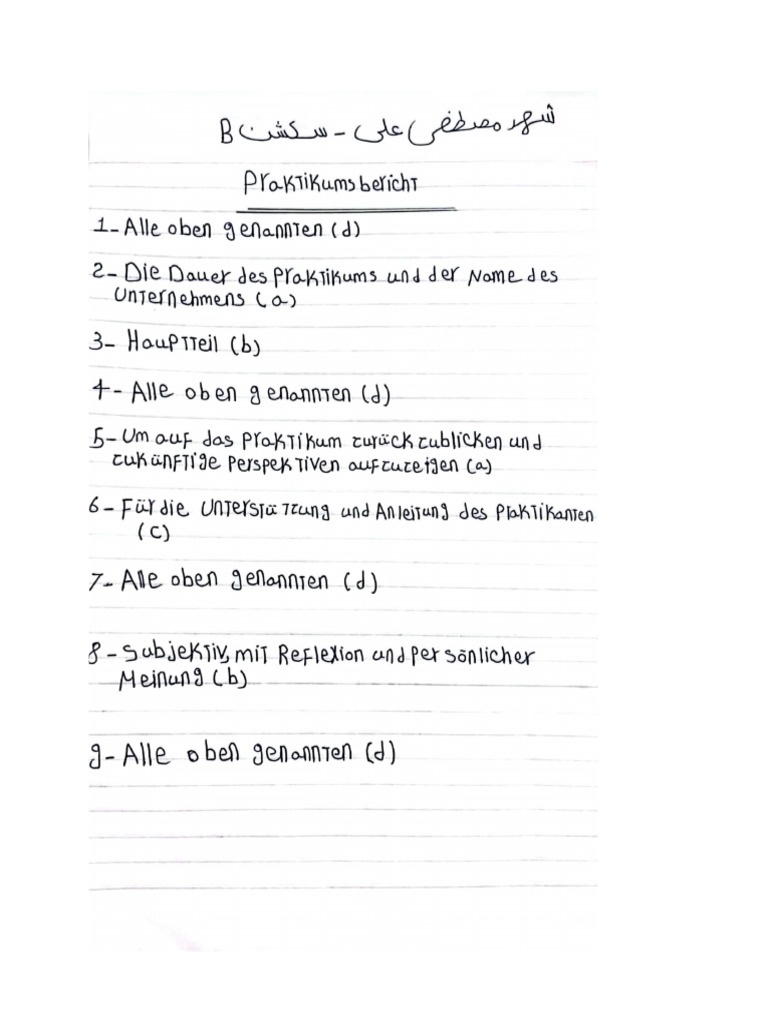 شهد مصطفى على - سكشن B
Praktikumsbericht
1- Alle oben genannten (d)
2- Die Dauer des Praktikums und der Name des
Unternehmens (a)
3- Hauptteil (b)
4- Alle oben genannten (d)
5- Um auf das Praktikum zurückzublicken und
zukünftige Perspektiven aufzuzeigen (a)
6- Für die Unterstützung und Anleitung des Praktikanten
(C)
7- Alle oben genannten (d)
8- Subjektiv, mit Reflexion und persönlicher
Meinung (b)
9- Alle oben genannten (d)